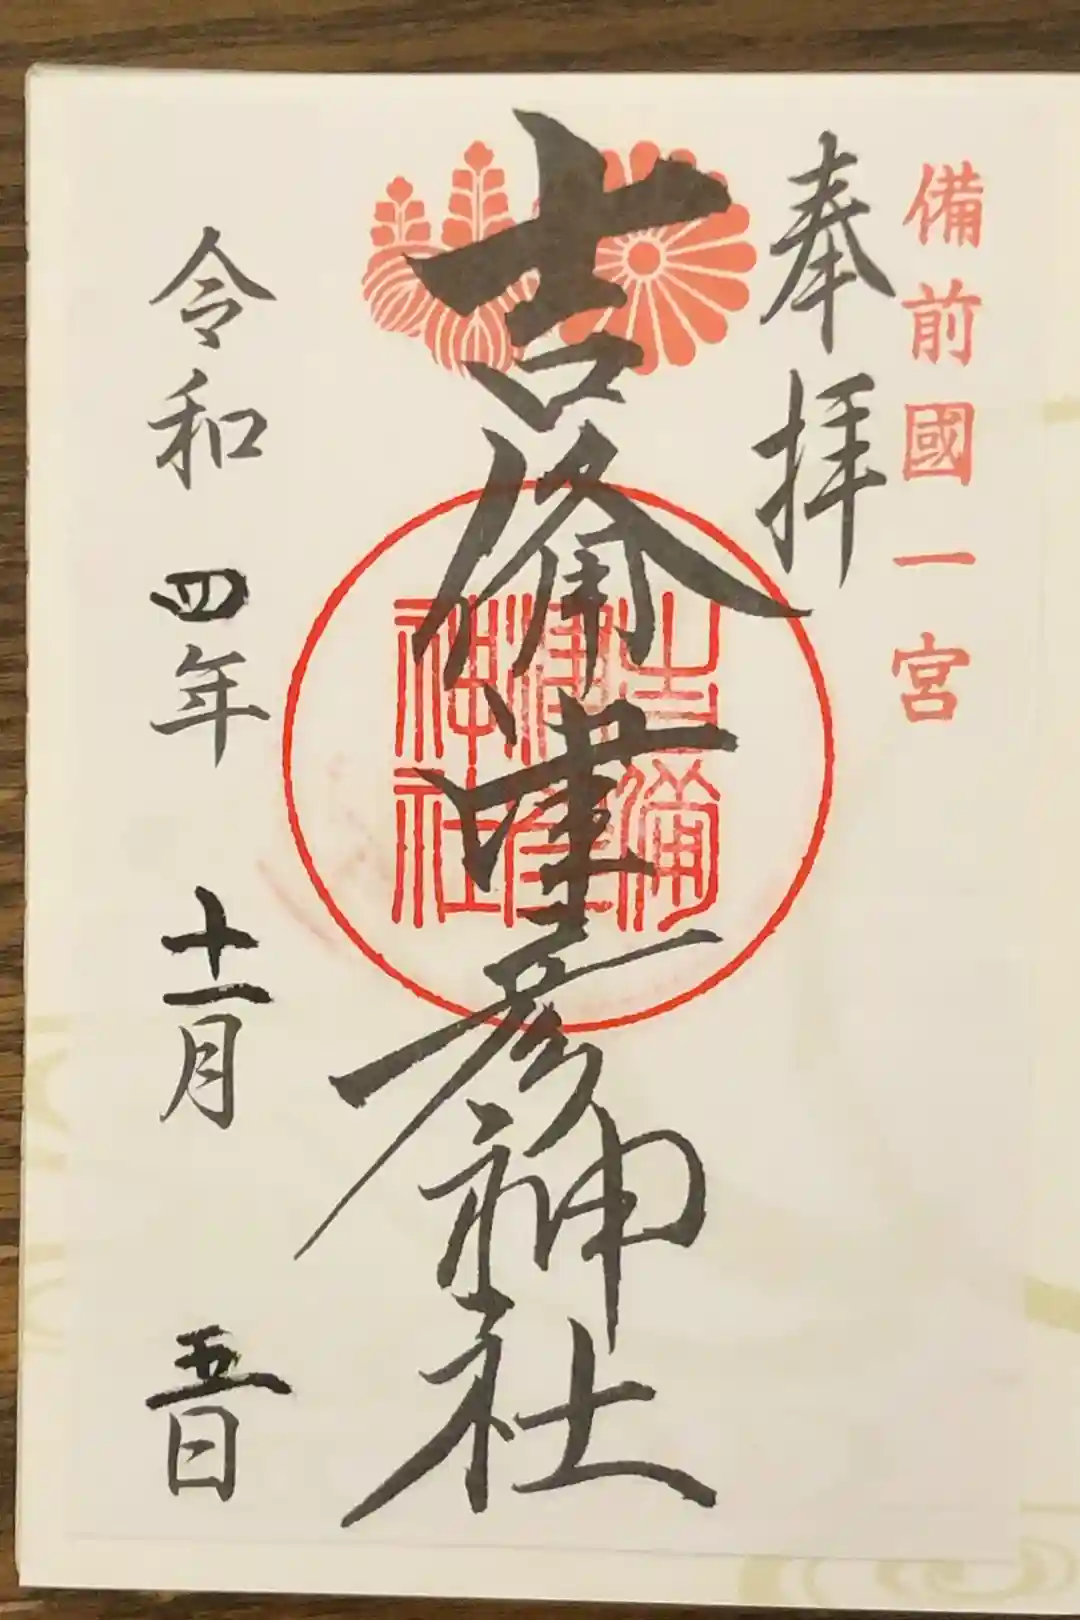 備前國一宮
奉拝
吉備津彦神社
吉備津彦神社
令和四年十一月五日